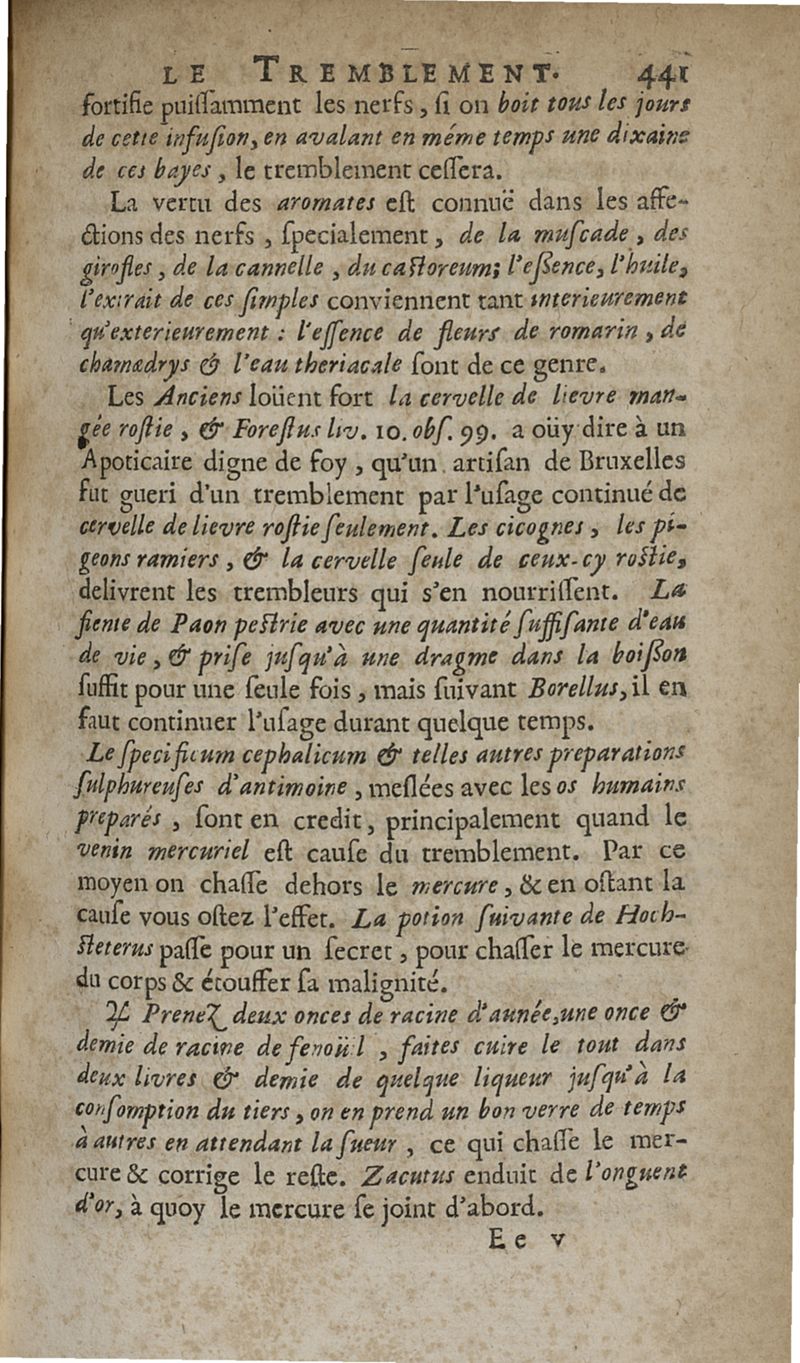 LE TREMBLEMENT. 441
fortifie puiſſamment les nerfs, ſi on boit tous les jours
de cette infuſion, en avalant en méme temps une dixaine
de ces bayes, le tremblement ceſſera.
La vertu des aromates eſt connuë dans les affe-
ctions des nerfs, ſpecialement, de la muſcade, des
girofles, de la cannelle, du caſtoreum; l'eſſence, l'huile,
l'extrait de ces ſimples conviennent tant interieurement
qu'exterieurement : l'eſſence de fleurs de romarin, de
chamædrys & l'eau theriacale ſont de ce genre.
Les Anciens loüent fort la cervelle de lievre man-
gée roſtie, & Foreſtus liv. 10. obſ. 99. a oüy dire à un
Apoticaire digne de foy, qu'un artiſan de Bruxelles
fut gueri d'un tremblement par l'uſage continué de
cervelle de lievre roſtie ſeulement. Les cicognes, les pi-
geons ramiers, & la cervelle ſeule de ceux-cy roſtie,
delivrent les trembleurs qui s'en nourriſſent. La
fiente de Paon peſtrie avec une quantité ſuffiſante d'eau
de vie, & priſe juſqu'à une dragme dans la boiſſon
ſuffit pour une ſeule fois, mais ſuivant Borellus, il en
faut continuer l'uſage durant quelque temps.
Le ſpecificum cephalicum & telles autres preparations
ſulphureuſes d'antimoine, meſlées avec les os humains
preparés, ſont en credit, principalement quand le
venin mercuriel eſt cauſe du tremblement. Par ce
moyen on chaſſe dehors le mercure, & en oſtant la
cauſe vous oſtez l'effet. La potion ſuivante de Hoch-
ſteterus paſſe pour un ſecret, pour chaſſer le mercure
du corps & étouffer ſa malignité.
♃ Prenez deux onces de racine d'aunée, une once &
demie de racine de fenoüil, faites cuire le tout dans
deux livres & demie de quelque liqueur juſqu'à la
conſomption du tiers, on en prend un bon verre de temps
à autres en attendant la ſueur, ce qui chaſſe le mer-
cure & corrige le reſte. Zacutus enduit de l'onguent
d'or, à quoy le mercure ſe joint d'abord.
Ee v